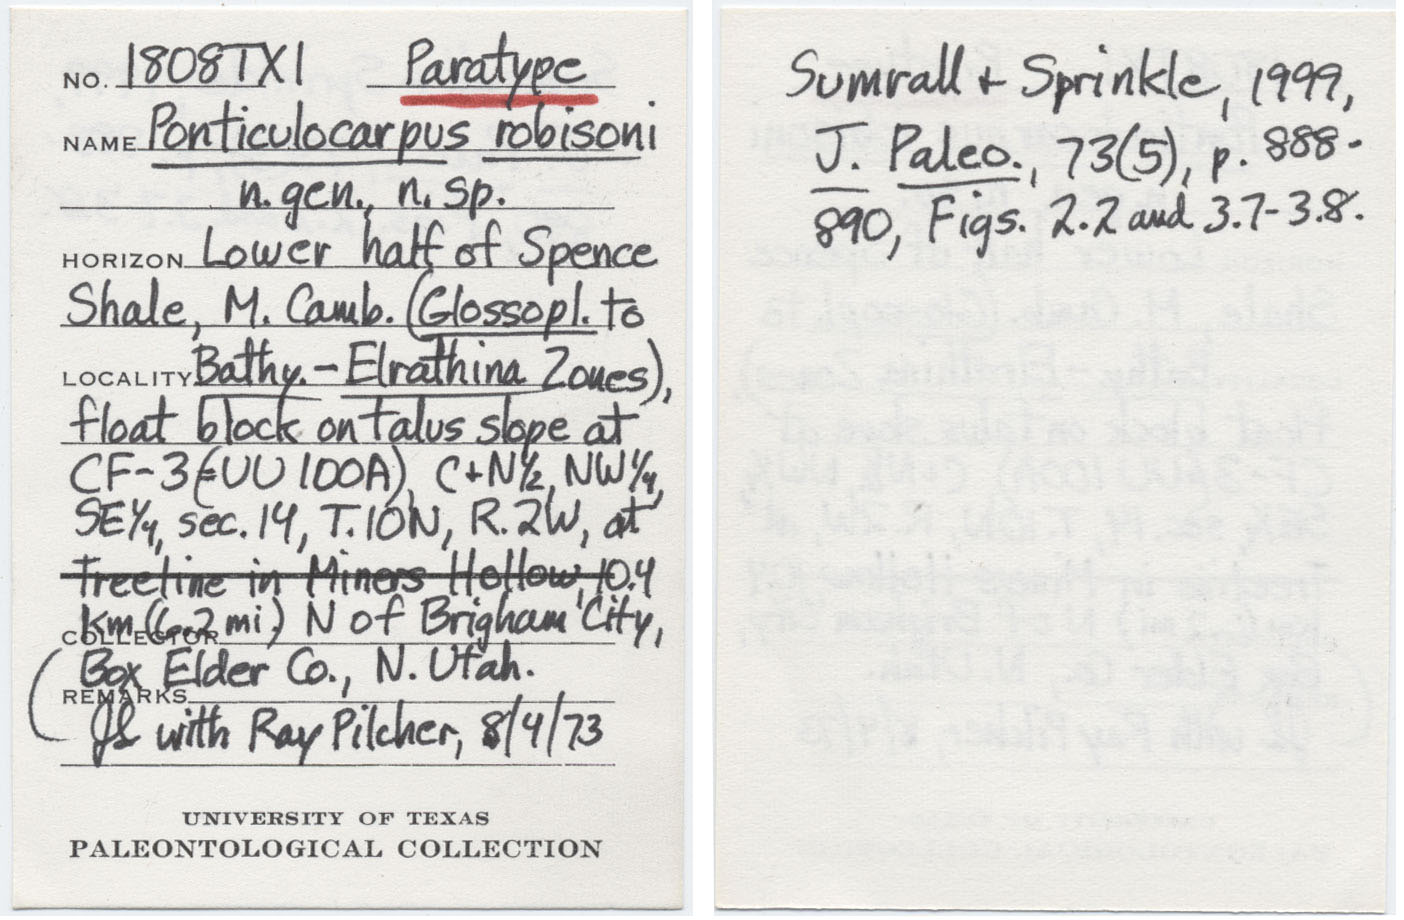 NO. 1808TX1 Paratype
NAME Ponticulocarpus robisoni
n. gen., n. sp.
HORIZON Lower half of Spence
Shale, M. Camb. (Glossopl. to
LOCALITY Bathy.-Elrathina Zones),
float block on talus slope at
CF-3 (=UU 100A), C+N½, NW¼,
SE¼, sec. 14, T.10N, R.2W, at
treeline in Miners Hollow, 10.4
km (6.2 mi) N of Brigham City,
COLLECTOR
Box Elder Co., N. Utah.
REMARKS
JS with Ray Pilcher, 8/4/73
UNIVERSITY OF TEXAS
PALEONTOLOGICAL COLLECTION
Sumrall + Sprinkle, 1999,
J. Paleo., 73(5), p. 888-
890, Figs. 2.2 and 3.7-3.8.